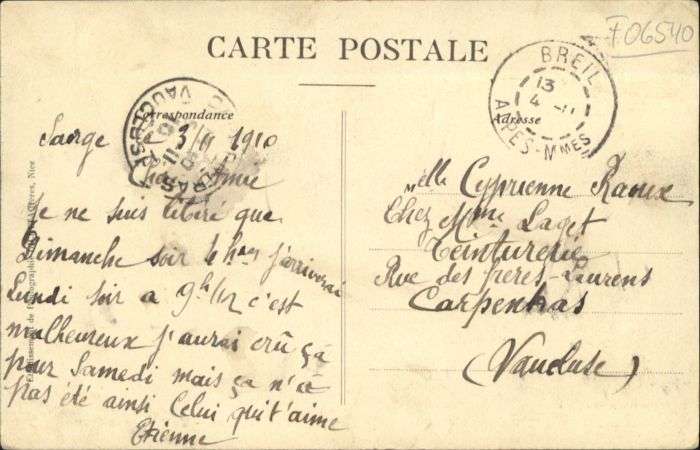 F06540
CARTE POSTALE
BREIL
13
4 - 11
ALPES-Mmes
Correspondance
Adresse
3/11 1910
Amie
Je ne suis libéré que
Dimanche soir 4 hres j'arriverai
Lundi soir a 9h/1/2 c'est
malheureux j'aurai crû ça
pour Samedi mais ça n'a
pas été ainsi Celui qui t'aime
Etienne
Melle Cyprienne Raoux
Chez Mme Laget
Teinturerie
Rue des frères-Laurens
Carpentras
(Vaucluse)